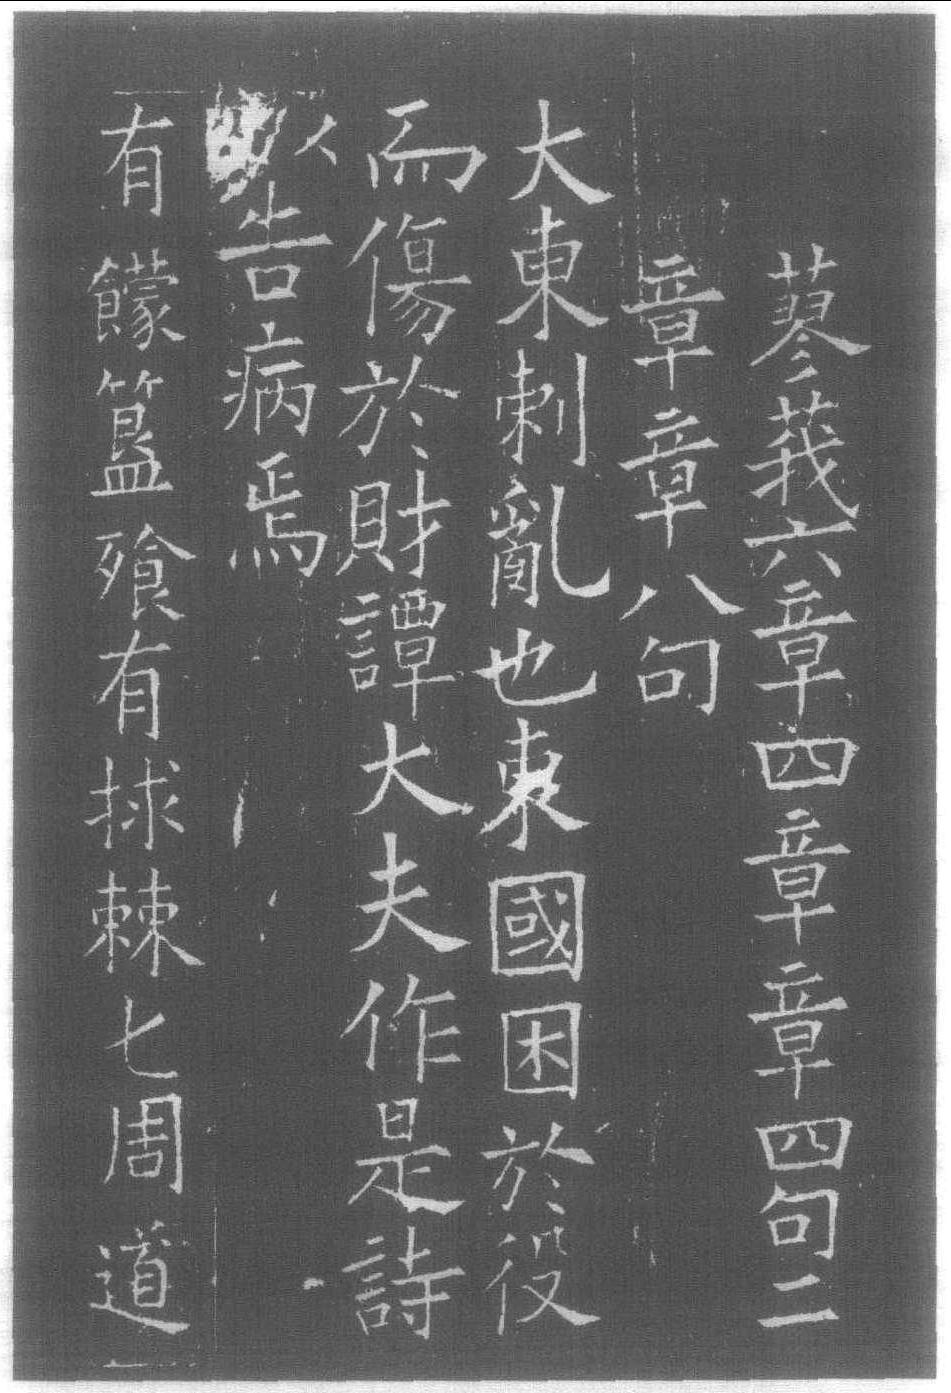 蓼莪六章四章章四句二
章章八句
大東刺亂也東國困於役
而傷於財譚大夫作是詩
告病焉
有饛簋飱有捄棘匕周道